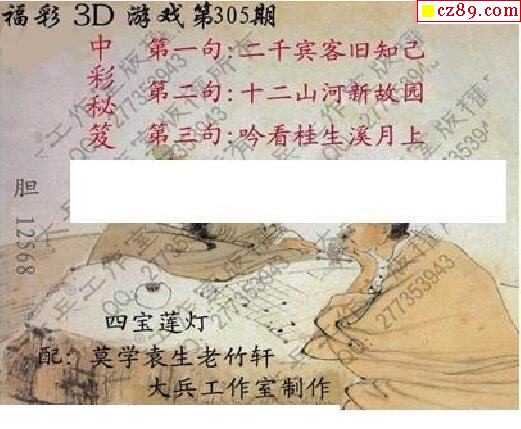 cz89.com
福彩 3D 游戏第305期
中彩秘笈
第一句:二千宾客旧知己
第二句:十二山河新故园
第三句:吟看桂生溪月上
胆 12568
四宝莲灯
配: 莫学袁生老竹轩
大兵工作室制作
大兵工作室版权所有
QQ:277353943